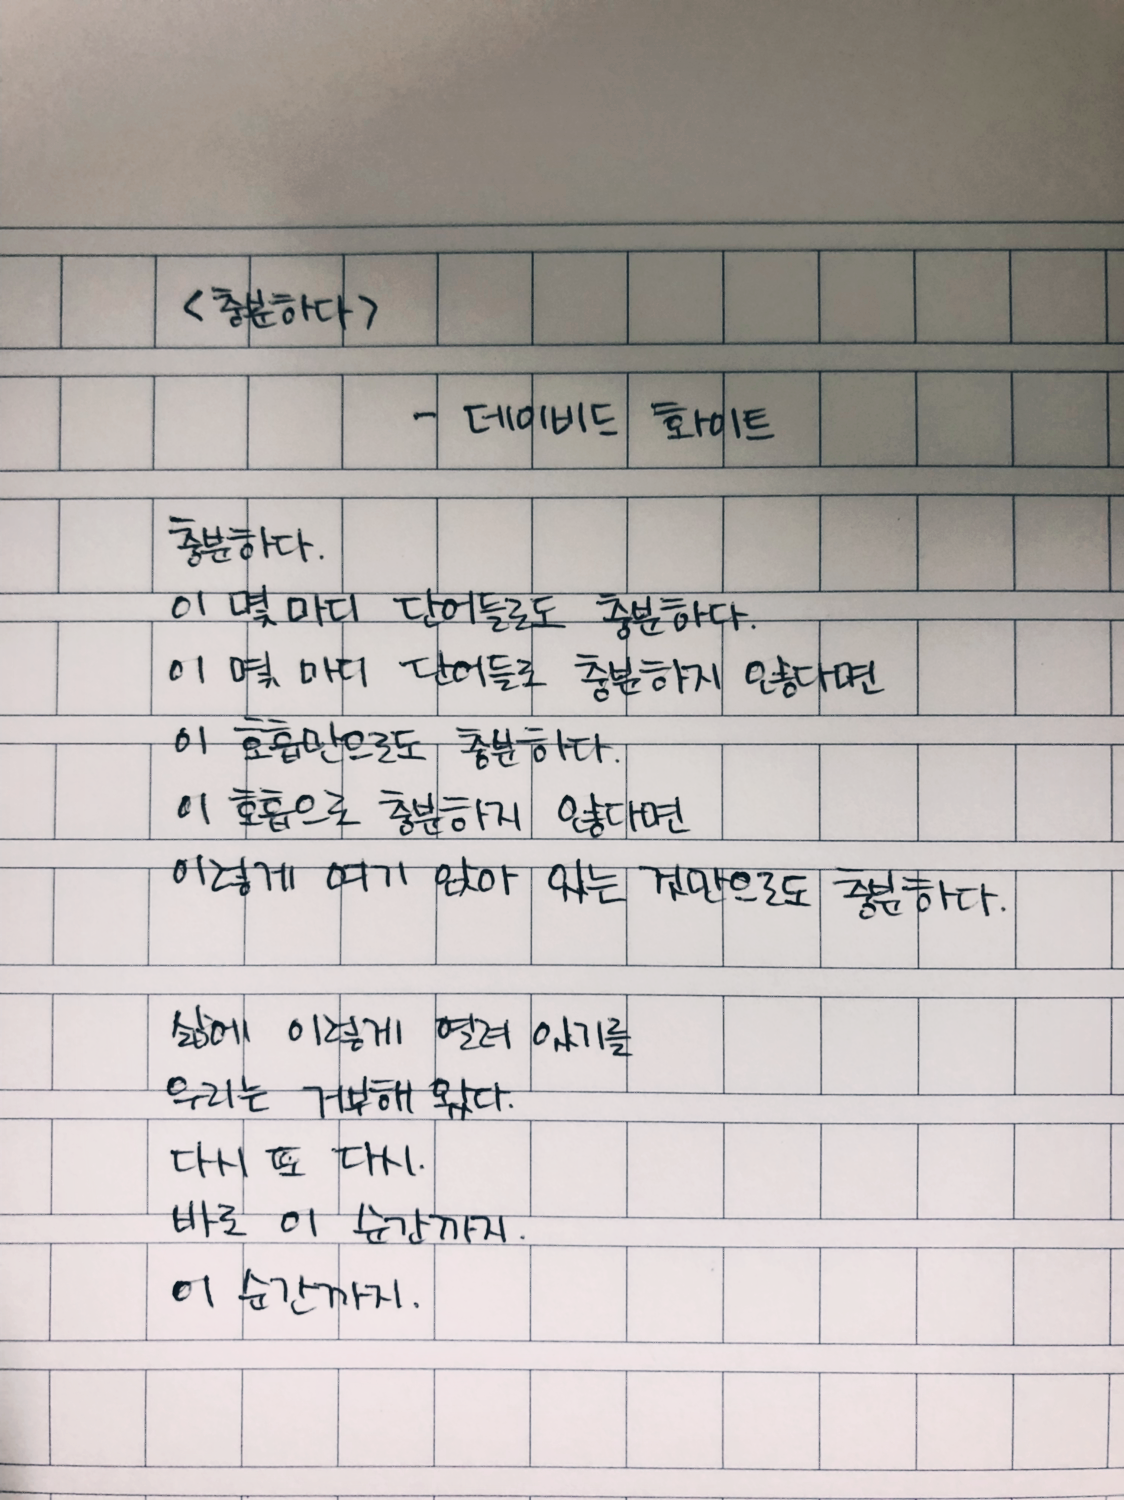 <충분하다>
- 데이비드 화이트
충분하다.
이 몇 마디 단어들로도 충분하다.
이 몇 마디 단어들로 충분하지 않다면
이 호흡만으로도 충분하다.
이 호흡으로 충분하지 않다면
이렇게 여기 앉아 있는 것만으로도 충분하다.
삶에 이렇게 열려 있기를
우리는 거부해 왔다.
다시 또 다시.
바로 이 순간까지.
이 순간까지.